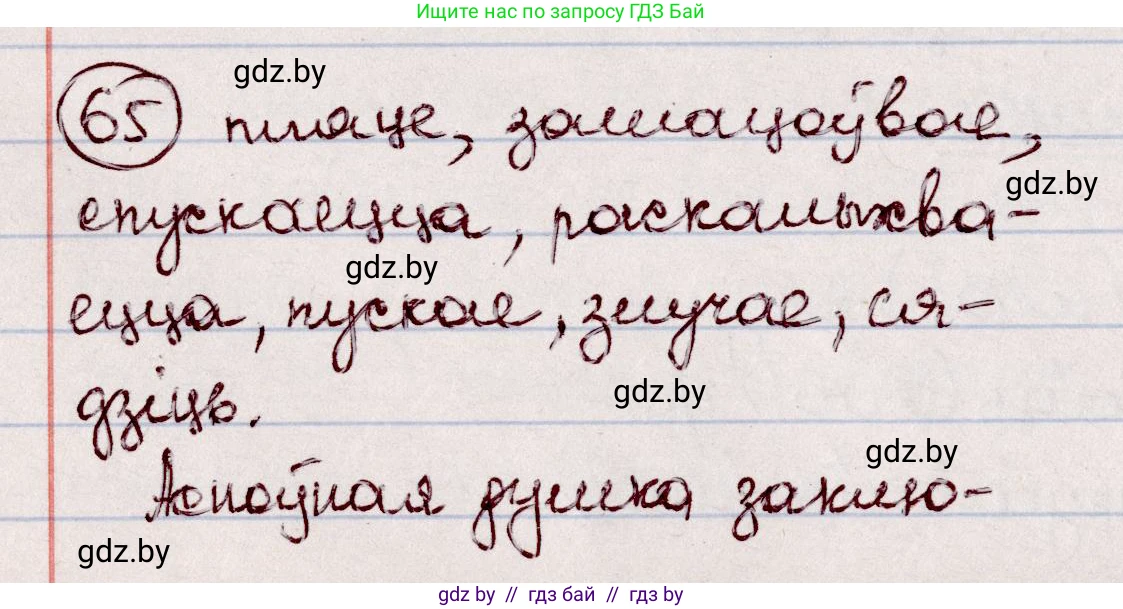 Ищите нас по запросу ГДЗ Бай
gdz.by
65 пляце, замацоўвае,
gdz.by
спускаецца, раскалыхва-
gdz.by
ецца, пускае, злучае, ся-
gdz.by
дзіць.
gdz.by
Асноўная думка заклю-
gdz.by
gdz by // гдз бай // гдз by